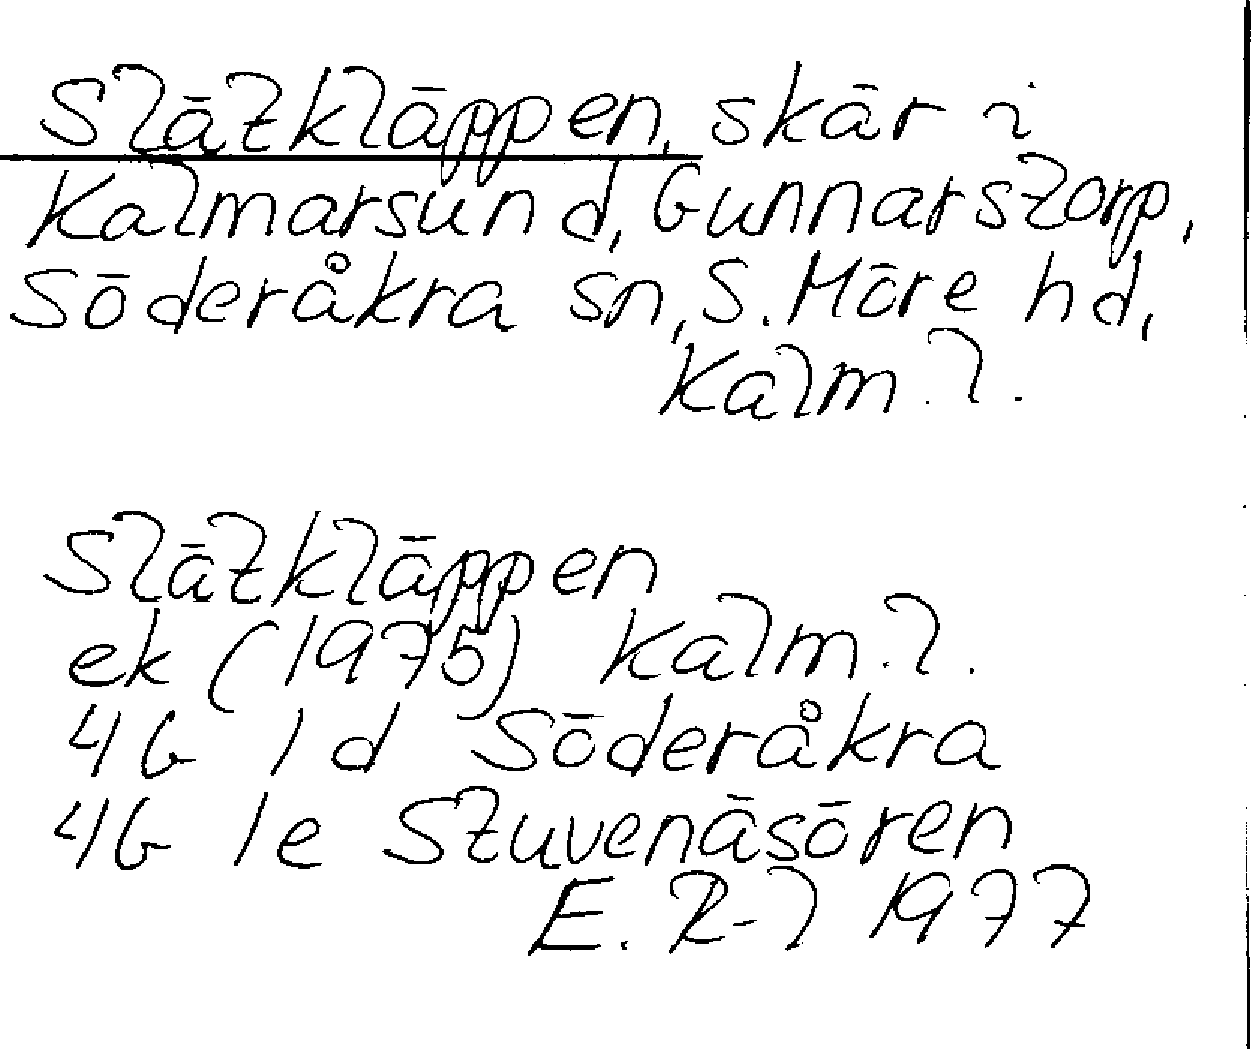 Slätkläppen, skär i
Kalmarsund, Gunnarstorp,
Söderåkra sn, S. Möre hd,
Kalm. l.
Slätkläppen
ek (1975) Kalm. l.
4G 1d Söderåkra
4G 1e Stuvenäsören
E. R-l 1977